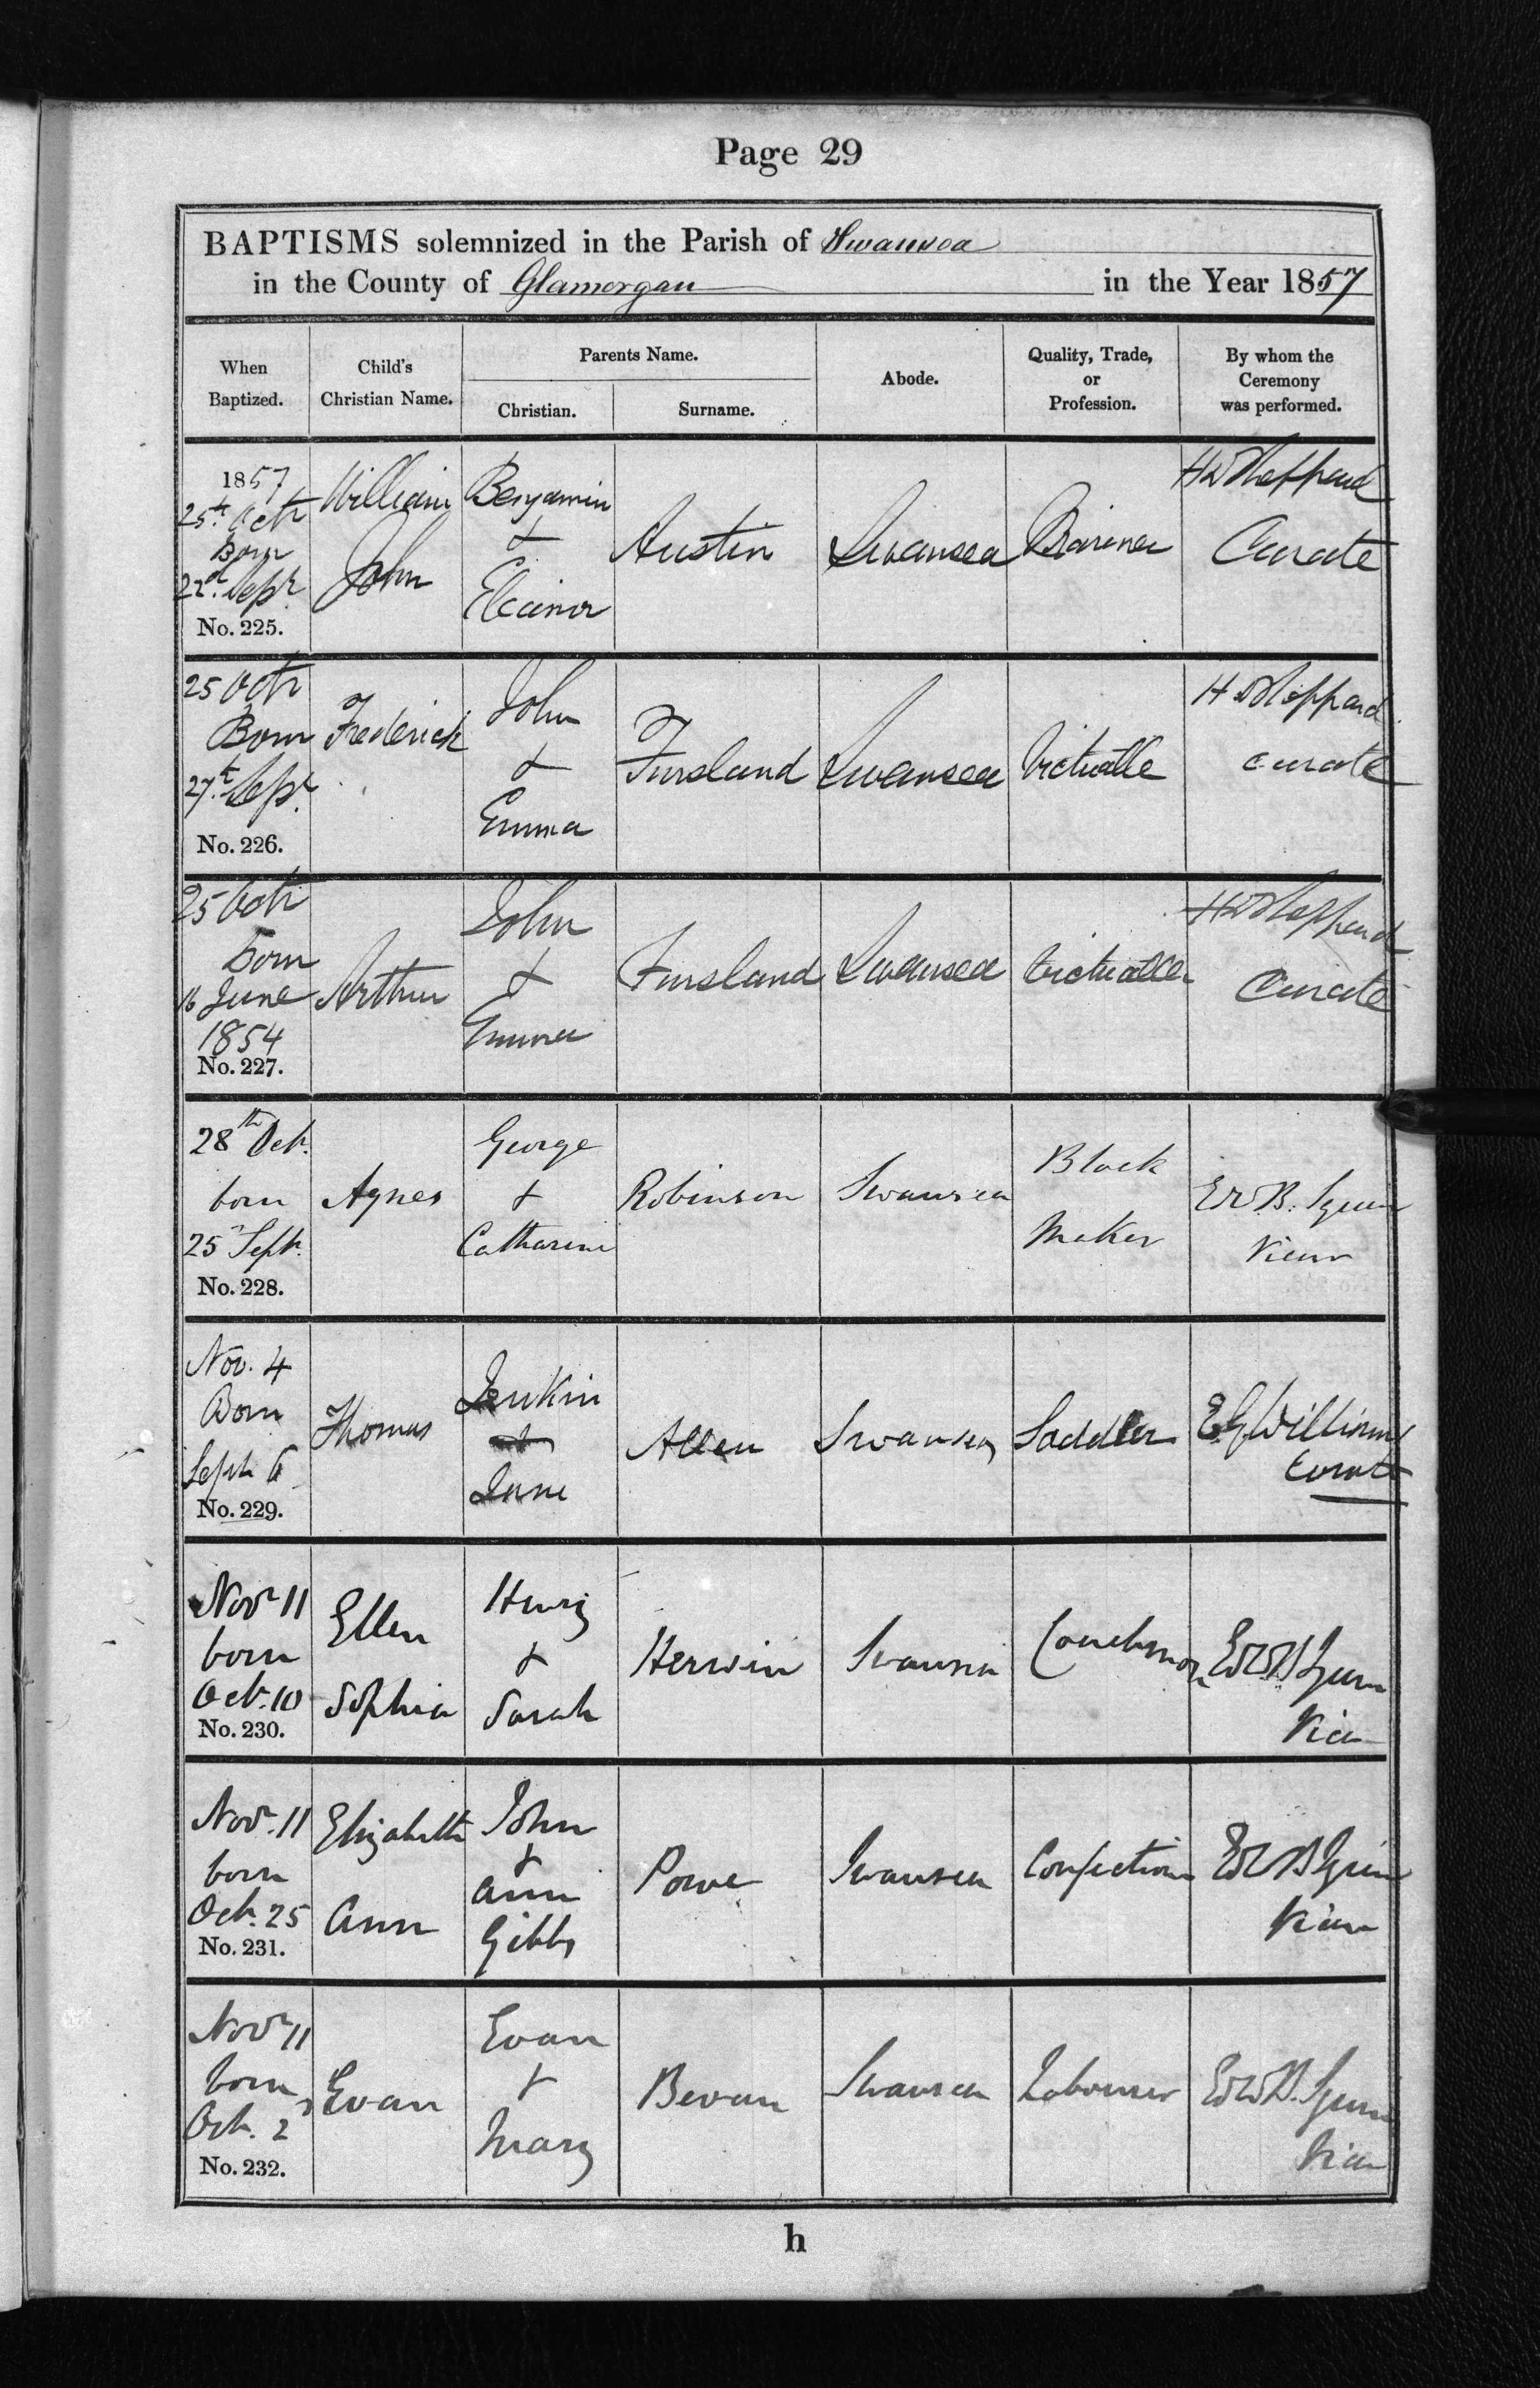 Page 29
BAPTISMS solemnized in the Parish of Swansea
in the County of Glamorgan in the Year 1857
When Baptized.
Child's Christian Name.
Parents Name.
Christian.
Surname.
Abode.
Quality, Trade, or Profession.
By whom the Ceremony was performed.
1857
25th Octr
Born
22d Sepr
No. 225.
William
John
Benjamin
&
Eleanor
Austin
Swansea
Curate
25 Octr
Born
27th Sepr
No. 226.
Frederick
John
&
Emma
Fursland
Swansea
Victualle
H W Sheppard
Curate
25 Octr
born
16 June
1854
No. 227.
Arthur
John
&
Emma
Fursland
Swansea
Victualler
H W Sheppard
Curate
28th Oct.
born
25 Sept.
No. 228.
Agnes
George
&
Catharine
Robinson
Swansea
Block
Maker
E W B. Squire
Vicar
Nov. 4
Born
Sept 6
No. 229.
Thomas
Jenkin
&
Jane
Allen
Swansea
Saddler
E G Williams
Curate
Novr 11
born
Oct. 10
No. 230.
Ellen
Sophia
Henry
&
Sarah
Herwin
Swansea
Coachman
E W B Squire
Vicar
Novr. 11
born
Oct. 25
No. 231.
Elizabeth
Ann
John
&
Ann
Gibbs
Powe
Swansea
Confection
E W B Squire
Vicar
Novr 11
born
Oct. 2
No. 232.
Evan
Evan
&
Mary
Bevan
Swansea
Labourer
E W B. Squire
Vicar
h